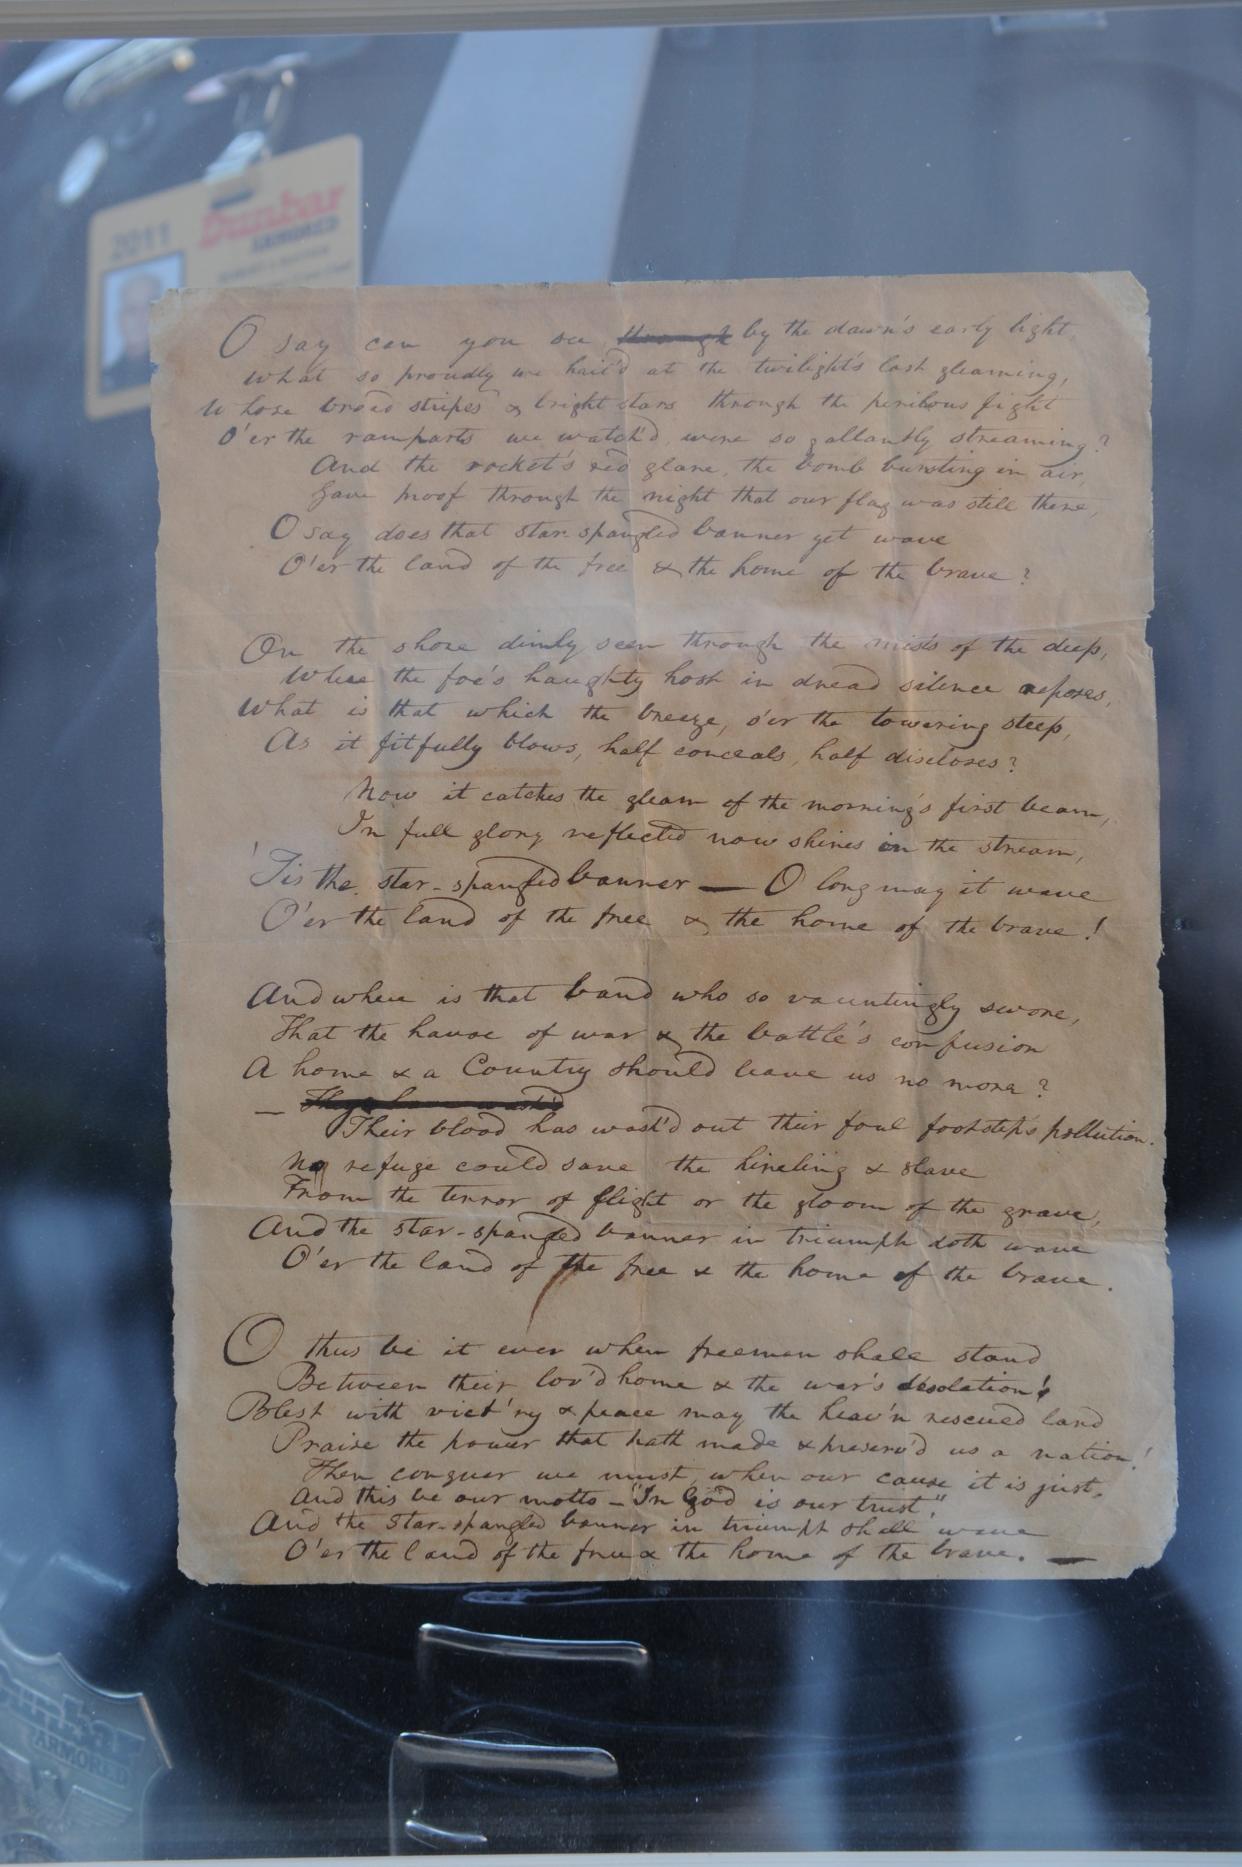 2011
Dunbar
ARMORED
O say can you see ~~through~~ by the dawn's early light,
What so proudly we hail'd at the twilight's last gleaming,
Whose broad stripes & bright stars through the perilous fight
O'er the ramparts we watch'd, were so gallantly streaming?
And the rocket's red glare, the bomb bursting in air,
Gave proof through the night that our flag was still there,
O say does that star-spangled banner yet wave
O'er the land of the free & the home of the brave?
On the shore dimly seen through the mists of the deep,
Where the foe's haughty host in dread silence reposes,
What is that which the breeze, o'er the towering steep,
As it fitfully blows, half conceals, half discloses?
Now it catches the gleam of the morning's first beam,
In full glory reflected now shines in the stream,
'Tis the star-spangled banner — O long may it wave
O'er the land of the free & the home of the brave!
And where is that band who so vauntingly swore,
That the havoc of war & the battle's confusion
A home & a Country should leave us no more?
— ~~They have wash'd~~
Their blood has wash'd out their foul footstep's pollution.
No refuge could save the hireling & slave
From the terror of flight or the gloom of the grave,
And the star-spangled banner in triumph doth wave
O'er the land of the free & the home of the brave.
O thus be it ever when freemen shall stand
Between their lov'd home & the war's desolation!
Blest with vict'ry & peace may the heav'n rescued land
Praise the power that hath made & preserv'd us a nation!
Then conquer we must, when our cause it is just,
And this be our motto – "In God is our trust,"
And the star-spangled banner in triumph shall wave
O'er the land of the free & the home of the brave. —
ARMORED